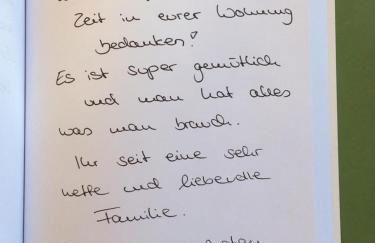 Zeit in eurer Wohnung
bedanken!
Es ist super gemütlich
und man hat alles
was man brauch.
Ihr seit eine sehr
nette und liebevolle
Familie.